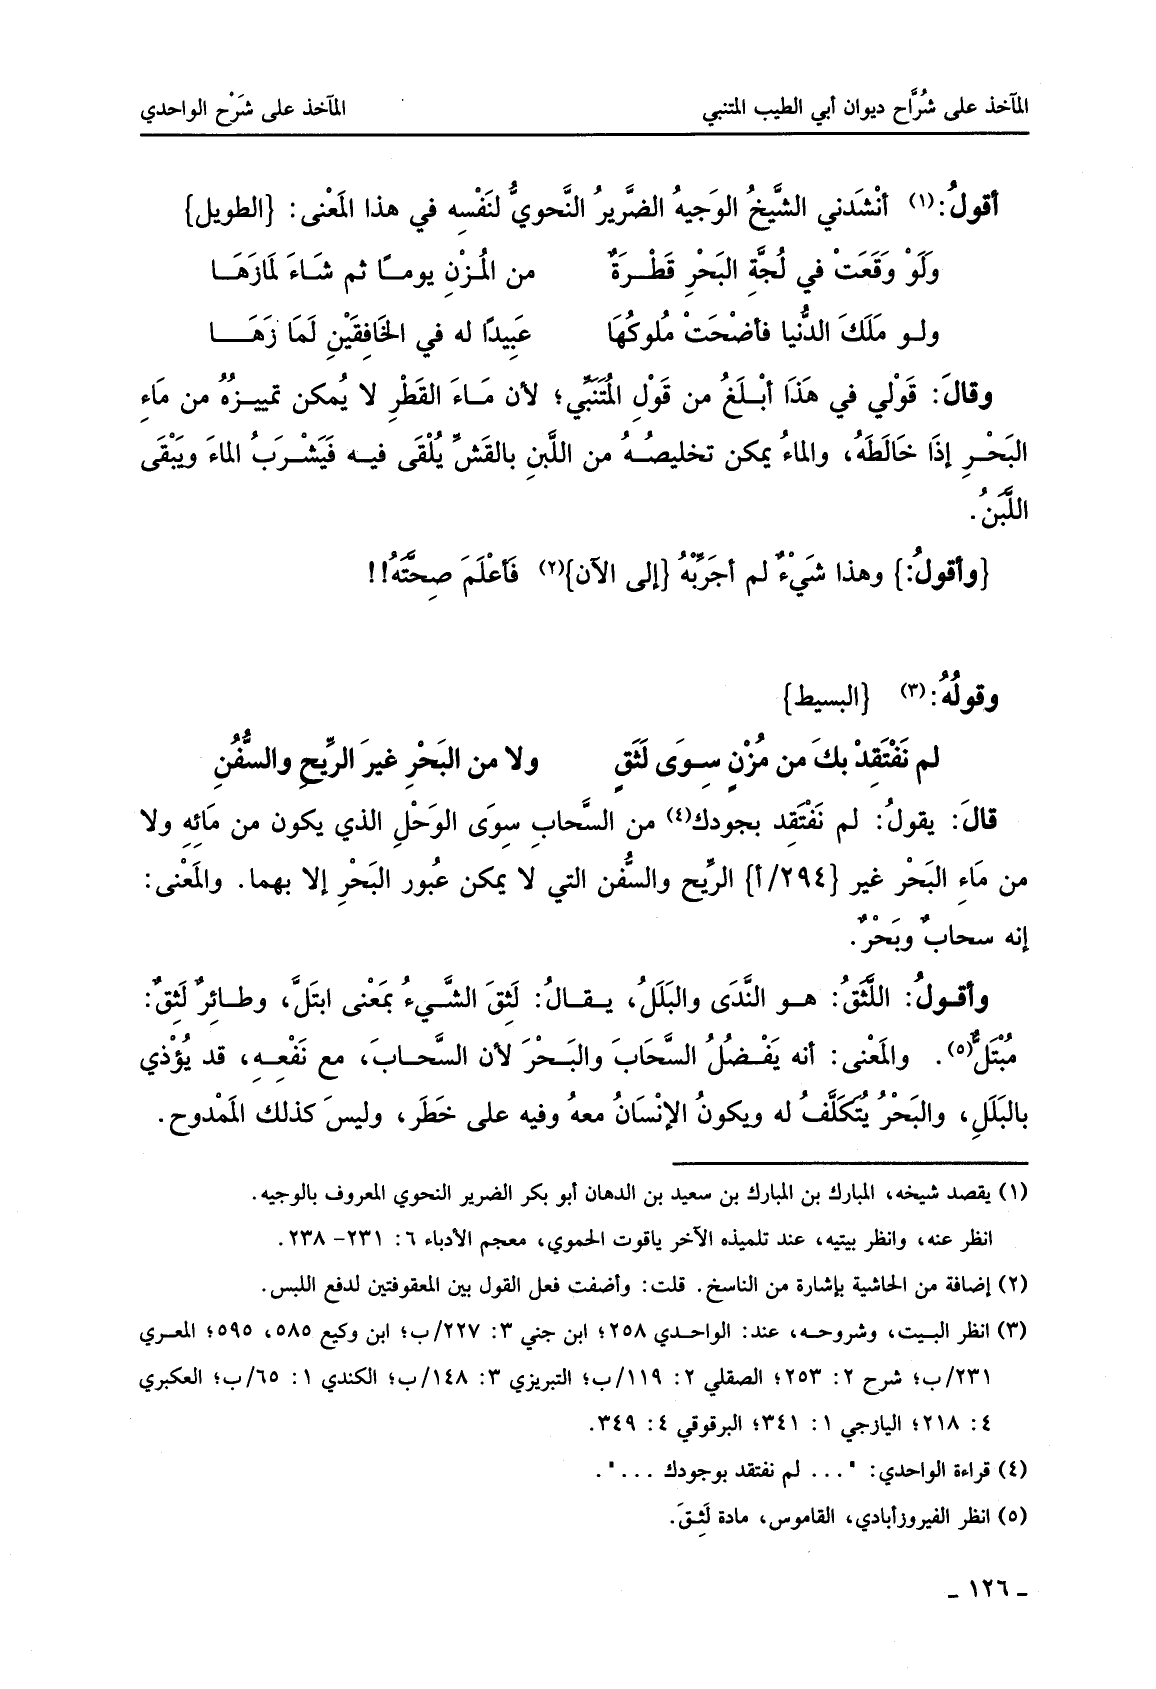 المآخذ على شُرَّاح ديوان أبي الطيب المتنبي المآخذ على شَرْح الواحدي
أقولُ:(١) أنْشَدني الشَّيخُ الوَجيهُ الضَّريرُ النَّحويُّ لنَفْسِه في هذا المَعْنى: {الطويل}
ولَوْ وَقَعَتْ في لُجَّةِ البَحْرِ قَطْـرَةٌ من المُـزْنِ يومـًا ثم شَـاءَ لمَازَهَـا
ولـو مَلَكَ الدُّنيا فأضْحَتْ مُلوكُهَا عَبِيدًا له في الخَافِقَيْنِ لَمَا زَهَـــا
وقالَ: قَوْلي في هَذَا أبْـلَغُ من قَوْلِ المُتَنَبِّي؛ لأن مَـاءَ القَطْرِ لا يُمكن تمييزهُ من مَاءِ
البَحْـرِ إذَا خَالَطَهُ، والماءُ يمكن تخليصُـهُ من اللَّبنِ بالقَشِّ يُلْقَى فيـه فَيَشْـرَبُ الماءَ ويَبْقَى
اللَّبَنُ.
{وأقولُ:} وهذا شَيْءٌ لم أجَرِّبْهُ {إلى الآن}(٢) فَأعْلَمَ صِحتَّهُ!!
وقولُهُ:(٣) {البسيط}
لم نَفْتَقِدْ بكَ من مُزْنٍ سِـوَى لَثَقٍ ولا من البَحْرِ غيرَ الرِّيحِ والسُّفُنِ
قالَ: يقولُ: لم نَفْتَقِد بجودك(٤) من السَّحابِ سِوَى الوَحْلِ الذي يكون من مَائِهِ ولا
من مَاءِ البَحْر غير {٢٩٤/أ} الرِّيح والسُّفن التي لا يمكن عُبور البَحْرِ إلا بهما. والمَعْنى:
إنه سحابٌ وبَحْرٌ.
وأقـولُ: اللَّثَقُ: هـو النَّدَى والبَلَلُ، يـقـالُ: لَثِقَ الشَّـيءُ بمَعْنى ابتَلَّ، وطـائِرٌ لَثِقٌ:
مُبْتَلٌّ(٥). والمَعْنى: أنه يَفْـضُلُ السَّحَابَ والبَـحْرَ لأن السَّحـابَ، مع نَفْعِـهِ، قد يُؤْذي
بالبَلَلِ، والبَحْرُ يُتَكَلَّفُ له ويكونُ الإنْسَانُ معهُ وفيه على خَطَر، وليسَ كذلك المَمْدوح.
(١) يقصد شيخه، المبارك بن المبارك بن سعيد بن الدهان أبو بكر الضرير النحوي المعروف بالوجيه.
انظر عنه، وانظر بيتيه، عند تلميذه الآخر ياقوت الحموي، معجم الأدباء ٦: ٢٣١- ٢٣٨.
(٢) إضافة من الحاشية بإشارة من الناسخ. قلت: وأضفت فعل القول بين المعقوفتين لدفع اللبس.
(٣) انظر البـيت، وشروحـه، عند: الواحـدي ٢٥٨؛ ابن جني ٣: ٢٢٧/ب؛ ابن وكيع ٥٨٥، ٥٩٥؛ المعـري
٢٣١/ب؛ شرح ٢: ٢٥٣؛ الصقلي ٢: ١١٩/ب؛ التبريزي ٣: ١٤٨/ب؛ الكندي ١: ٦٥/ب؛ العكبري
٤: ٢١٨؛ اليازجي ١: ٣٤١؛ البرقوقي ٤: ٣٤٩.
(٤) قراءة الواحدي: "... لم نفتقد بوجودك ...".
(٥) انظر الفيروزأبادي، القاموس، مادة لَثِـقَ.
ـ ١٢٦ ـ